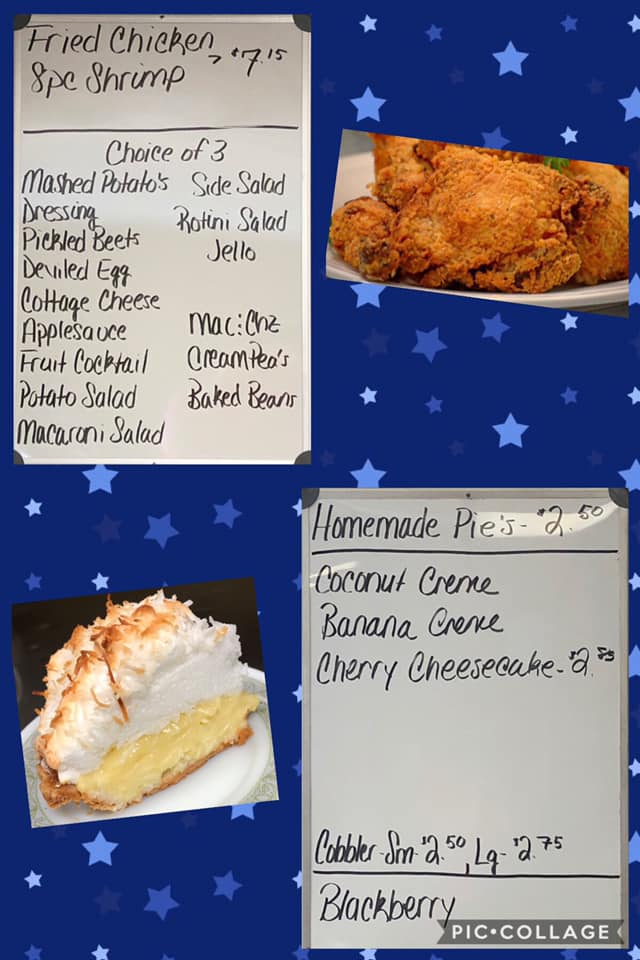 Fried Chicken
8pc Shrimp > $7.15
Choice of 3
Mashed Potato's
Dressing
Pickled Beets
Deviled Egg
Cottage Cheese
Applesauce
Fruit Cocktail
Potato Salad
Macaroni Salad
Side Salad
Rotini Salad
Jello
Mac:Chz
CreamPea's
Baked Beans
Homemade Pie's- $2.50
Coconut Creme
Banana Creme
Cherry Cheesecake- $2.85
Cobbler-Sm-$2.50, Lg-$2.75
Blackberry
PIC•COLLAGE